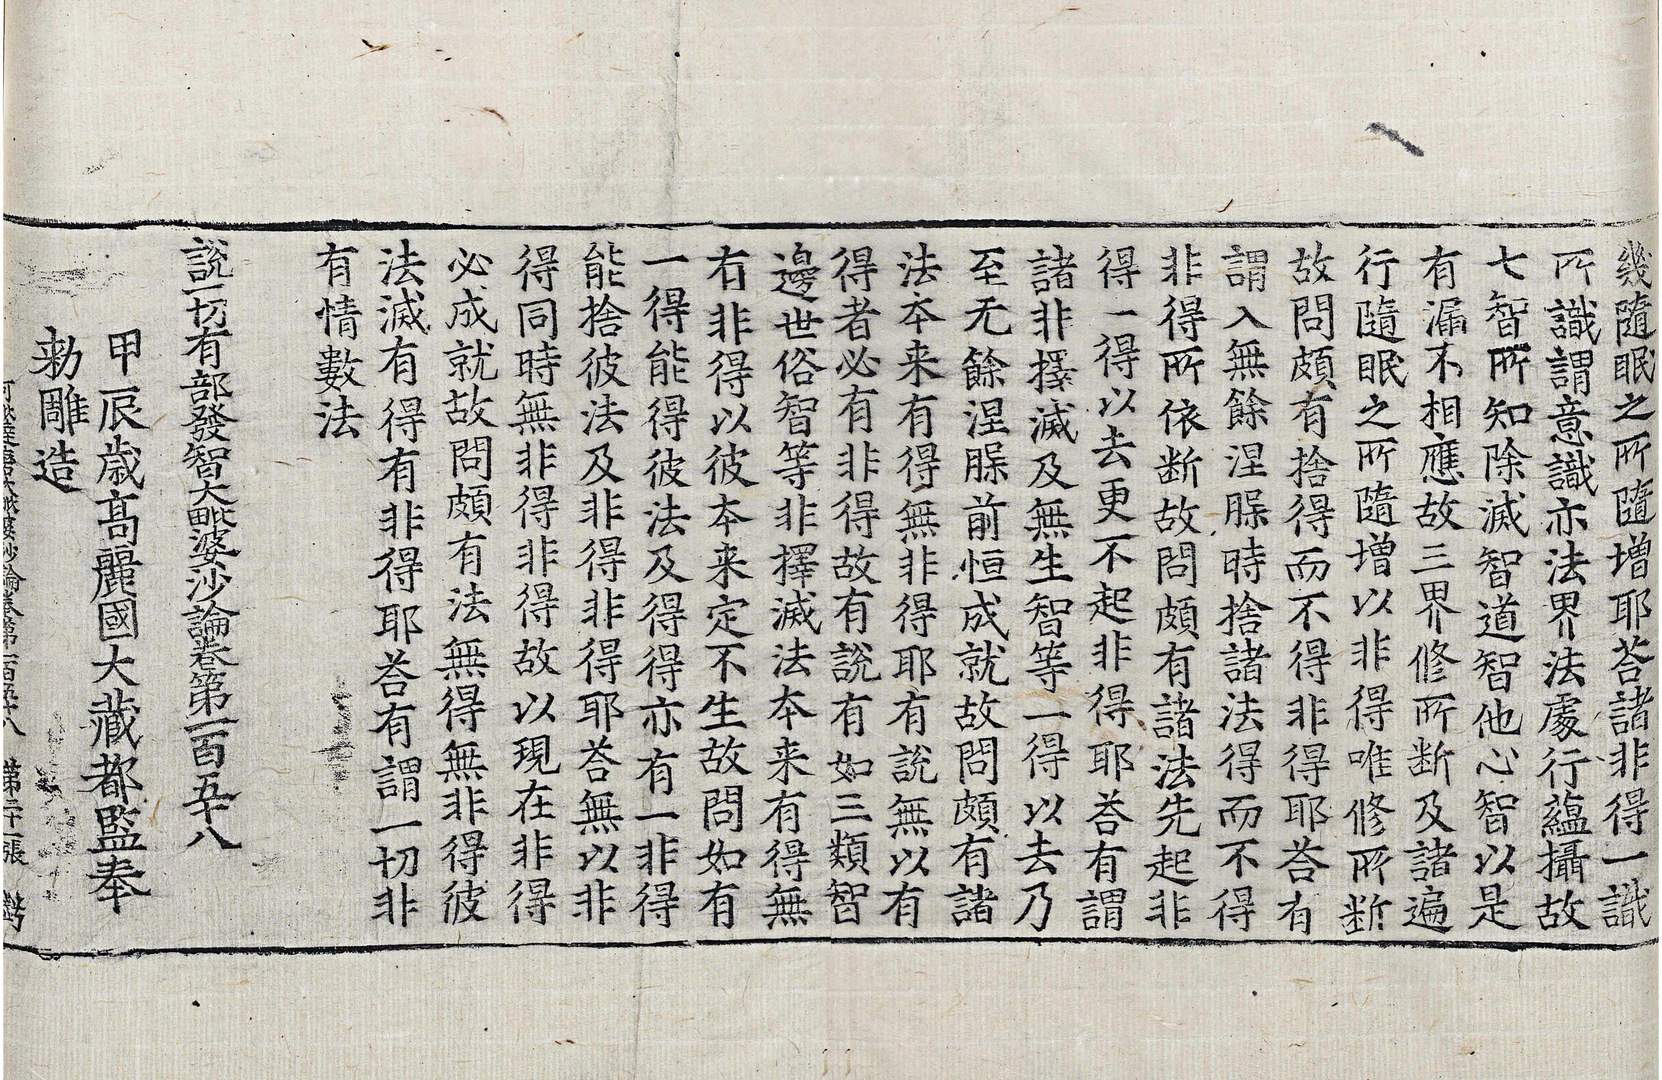 幾隨眠之所隨增耶荅諸非得一識
所識謂意識亦法界法處行蘊攝故
七智所知除滅智道智他心智以是
有漏不相應故三界修所斷及諸遍
行隨眠之所隨增以非得唯修所斷
故問頗有捨得而不得非得耶荅有
謂入無餘涅槃時捨諸法得而不得
非得所依斷故問頗有諸法先起非
得一得以去更不起非得耶荅有謂
諸非擇滅及無生智等一得以去乃
至无餘涅槃前恒成就故問頗有諸
法本来有得無非得耶有說無以有
得者必有非得故有說有如三類智
邊世俗智等非擇滅法本来有得無
有非得以彼本来定不生故問如有
一得能得彼法及得得亦有一非得
能捨彼法及非得非得耶荅無以非
得同時無非得非得故以現在非得
必成就故問頗有法無得無非得彼
法滅有得有非得耶荅有謂一切非
有情數法
說一切有部發智大毗婆沙論卷第一百五十八
甲辰歲高麗國大藏都監奉
勅雕造